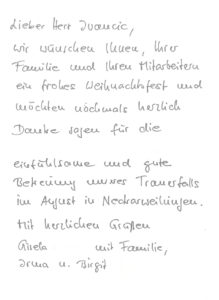 Lieber Herr Ivancic,
wir wünschen Ihnen, Ihrer
Familie und Ihren Mitarbeitern
ein frohes Weihnachtsfest und
möchten nochmals herzlich
Danke sagen für die
einfühlsame und gute
Betreuung unseres Trauerfalls
im August in Neckarweihingen.
Mit herzlichen Grüßen
Gisela mit Familie,
Irma u. Birgit